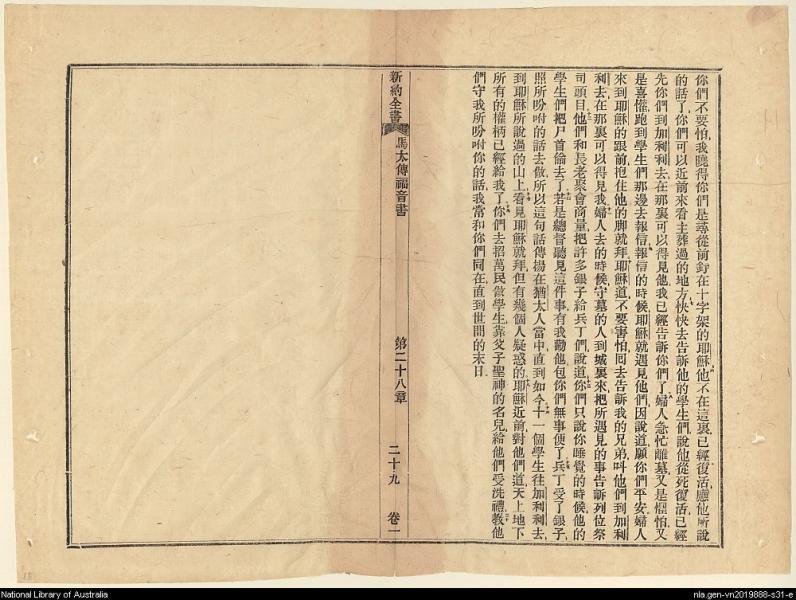 你們不要怕、我曉得你們是尋從前釘在十字架的耶穌、他不在這裏、已經復活、應他所說
的話了、你們可以近前來看主葬過的地方、快快去告訴他的學生們、說他從死復活、已經
先你們到加利利去、在那裏可以得見他、我已經告訴你們了、婦人急忙離墓、又是懼怕、又
是喜懽、跑到學生們那邊去報信、報信的時候、耶穌就遇見他們、因說道、願你們平安、婦人
來到耶穌的跟前、抱住他的脚就拜、耶穌道、不要害怕、囘去告訴我的兄弟、呌他們到加利
利去、在那裏可以得見我、婦人去的時候、守墓的人到城裏來、把所遇見的事告訴列位祭
司頭目、他們和長老聚會商量、把許多銀子給兵丁們、說道、你們只說、你睡覺的時候、他的
學生們把尸首偷去了、若是總督聽見這件事、有我勸他、包你們無事便了、兵丁受了銀子、
照所吩咐的話去做、所以這句話傳揚在猶太人當中、直到如今、十一個學生往加利利去、
到耶穌所說過的山上、看見耶穌就拜、但有幾個人疑惑的、耶穌近前、對他們道、天上地下
所有的權柄、已經給我了、你們去招萬民做學生、靠父子聖神的名兒、給他們受洗禮、教他
們守我所吩咐你的話、我當和你們同在、直到世間的末日、
新約全書 馬太傳福音書 第二十八章 二十九 卷一
National Library of Australia
nla.gen-vn2019888-s31-e